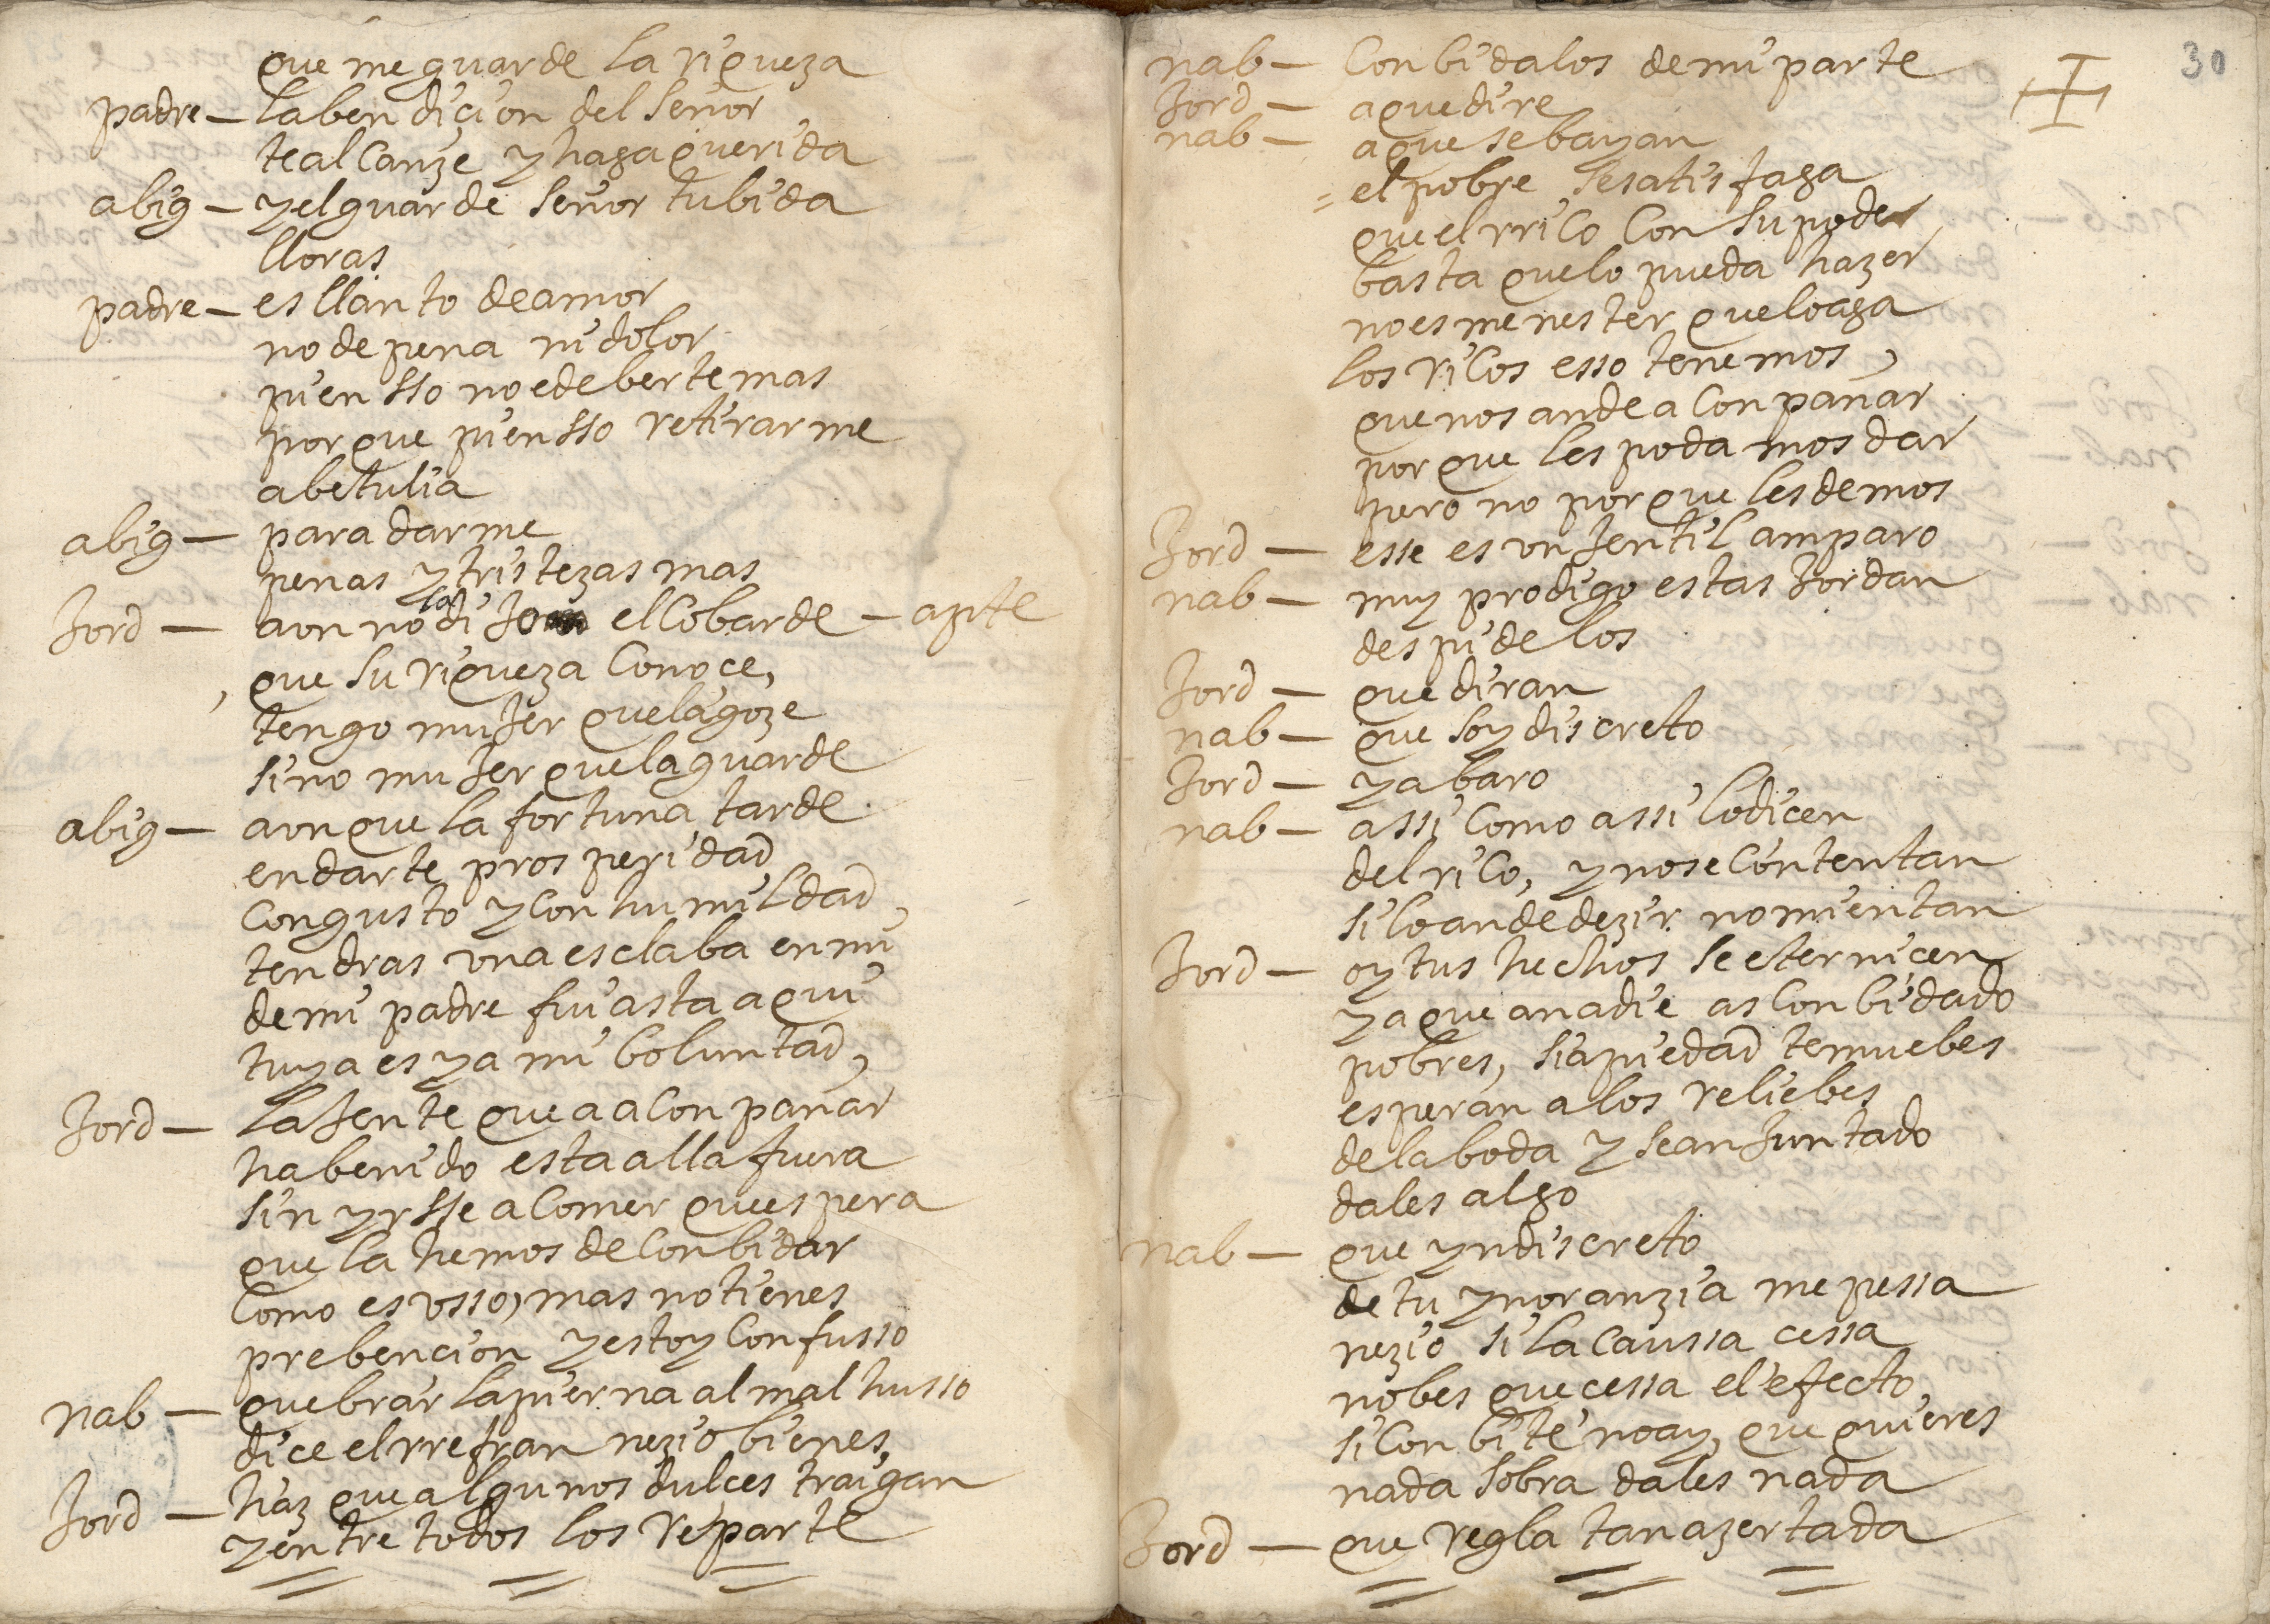 que me guarde la riqueza
padre — la bendicion del señor
te alcanze y haga querida
abig — y el guarde señor tu bida
lloras
padre — es llanto de amor
no de pena ni dolor
piensso no e de berte mas
porque piensso retirarme
a betulia
abig — para darme
penas y tristezas mas
Jord — aun no lo dijo el cobarde — apte
que su riqueza conoce,
tengo mujer que la goze
sino mujer que la guarde
abig — aunque la fortuna tarde
en darte prosperidad
con gusto y con humildad,
tendras una esclaba en mi
de mi padre fui asta aqui
tuya es ya mi boluntad,
Jord — la jente que a aconpañar
ha benido esta alla fuera
sin yrsse a comer que espera
que la hemos de conbidar
como es usso, mas no tienes
prebencion y estoy confusso
nab — quebrar la pierna al mal husso
dice el rrefran nezio bienes,
Jord — haz que algunos dulces traigan
y entre todos los reparte
30
nab — Conbidalos de mi parte
Jord — a que dire
nab — a que se bayan
= el pobre se satisfaga
que el rrico con su poder
basta que lo pueda hazer
no es menester que lo aga
los ricos esso tenemos,
que nos an de aconpañar
porque les podamos dar
pero no porque les demos
Jord — esse es un jentil amparo
nab — muy prodigo estas Jordan
despidelos
Jord — que diran
nab — que soy discreto
Jord — y abaro
nab — assi como assi lo dicen
del rico, y no se contentan
si lo an de dezir no mientan
Jord — oy tus hechos se eternicen
ya que a nadie as conbidado
pobres, si a piedad te muebes
esperan a los reliebes
de la boda y se an juntado
dales algo
nab — que yndiscreto
de tu ynoranzia me pessa
nezio si la caussa cessa
no bes que cessa el efecto,
si conbite no ay, que quieres
nada sobra dales nada
Jord — que regla tan azertada